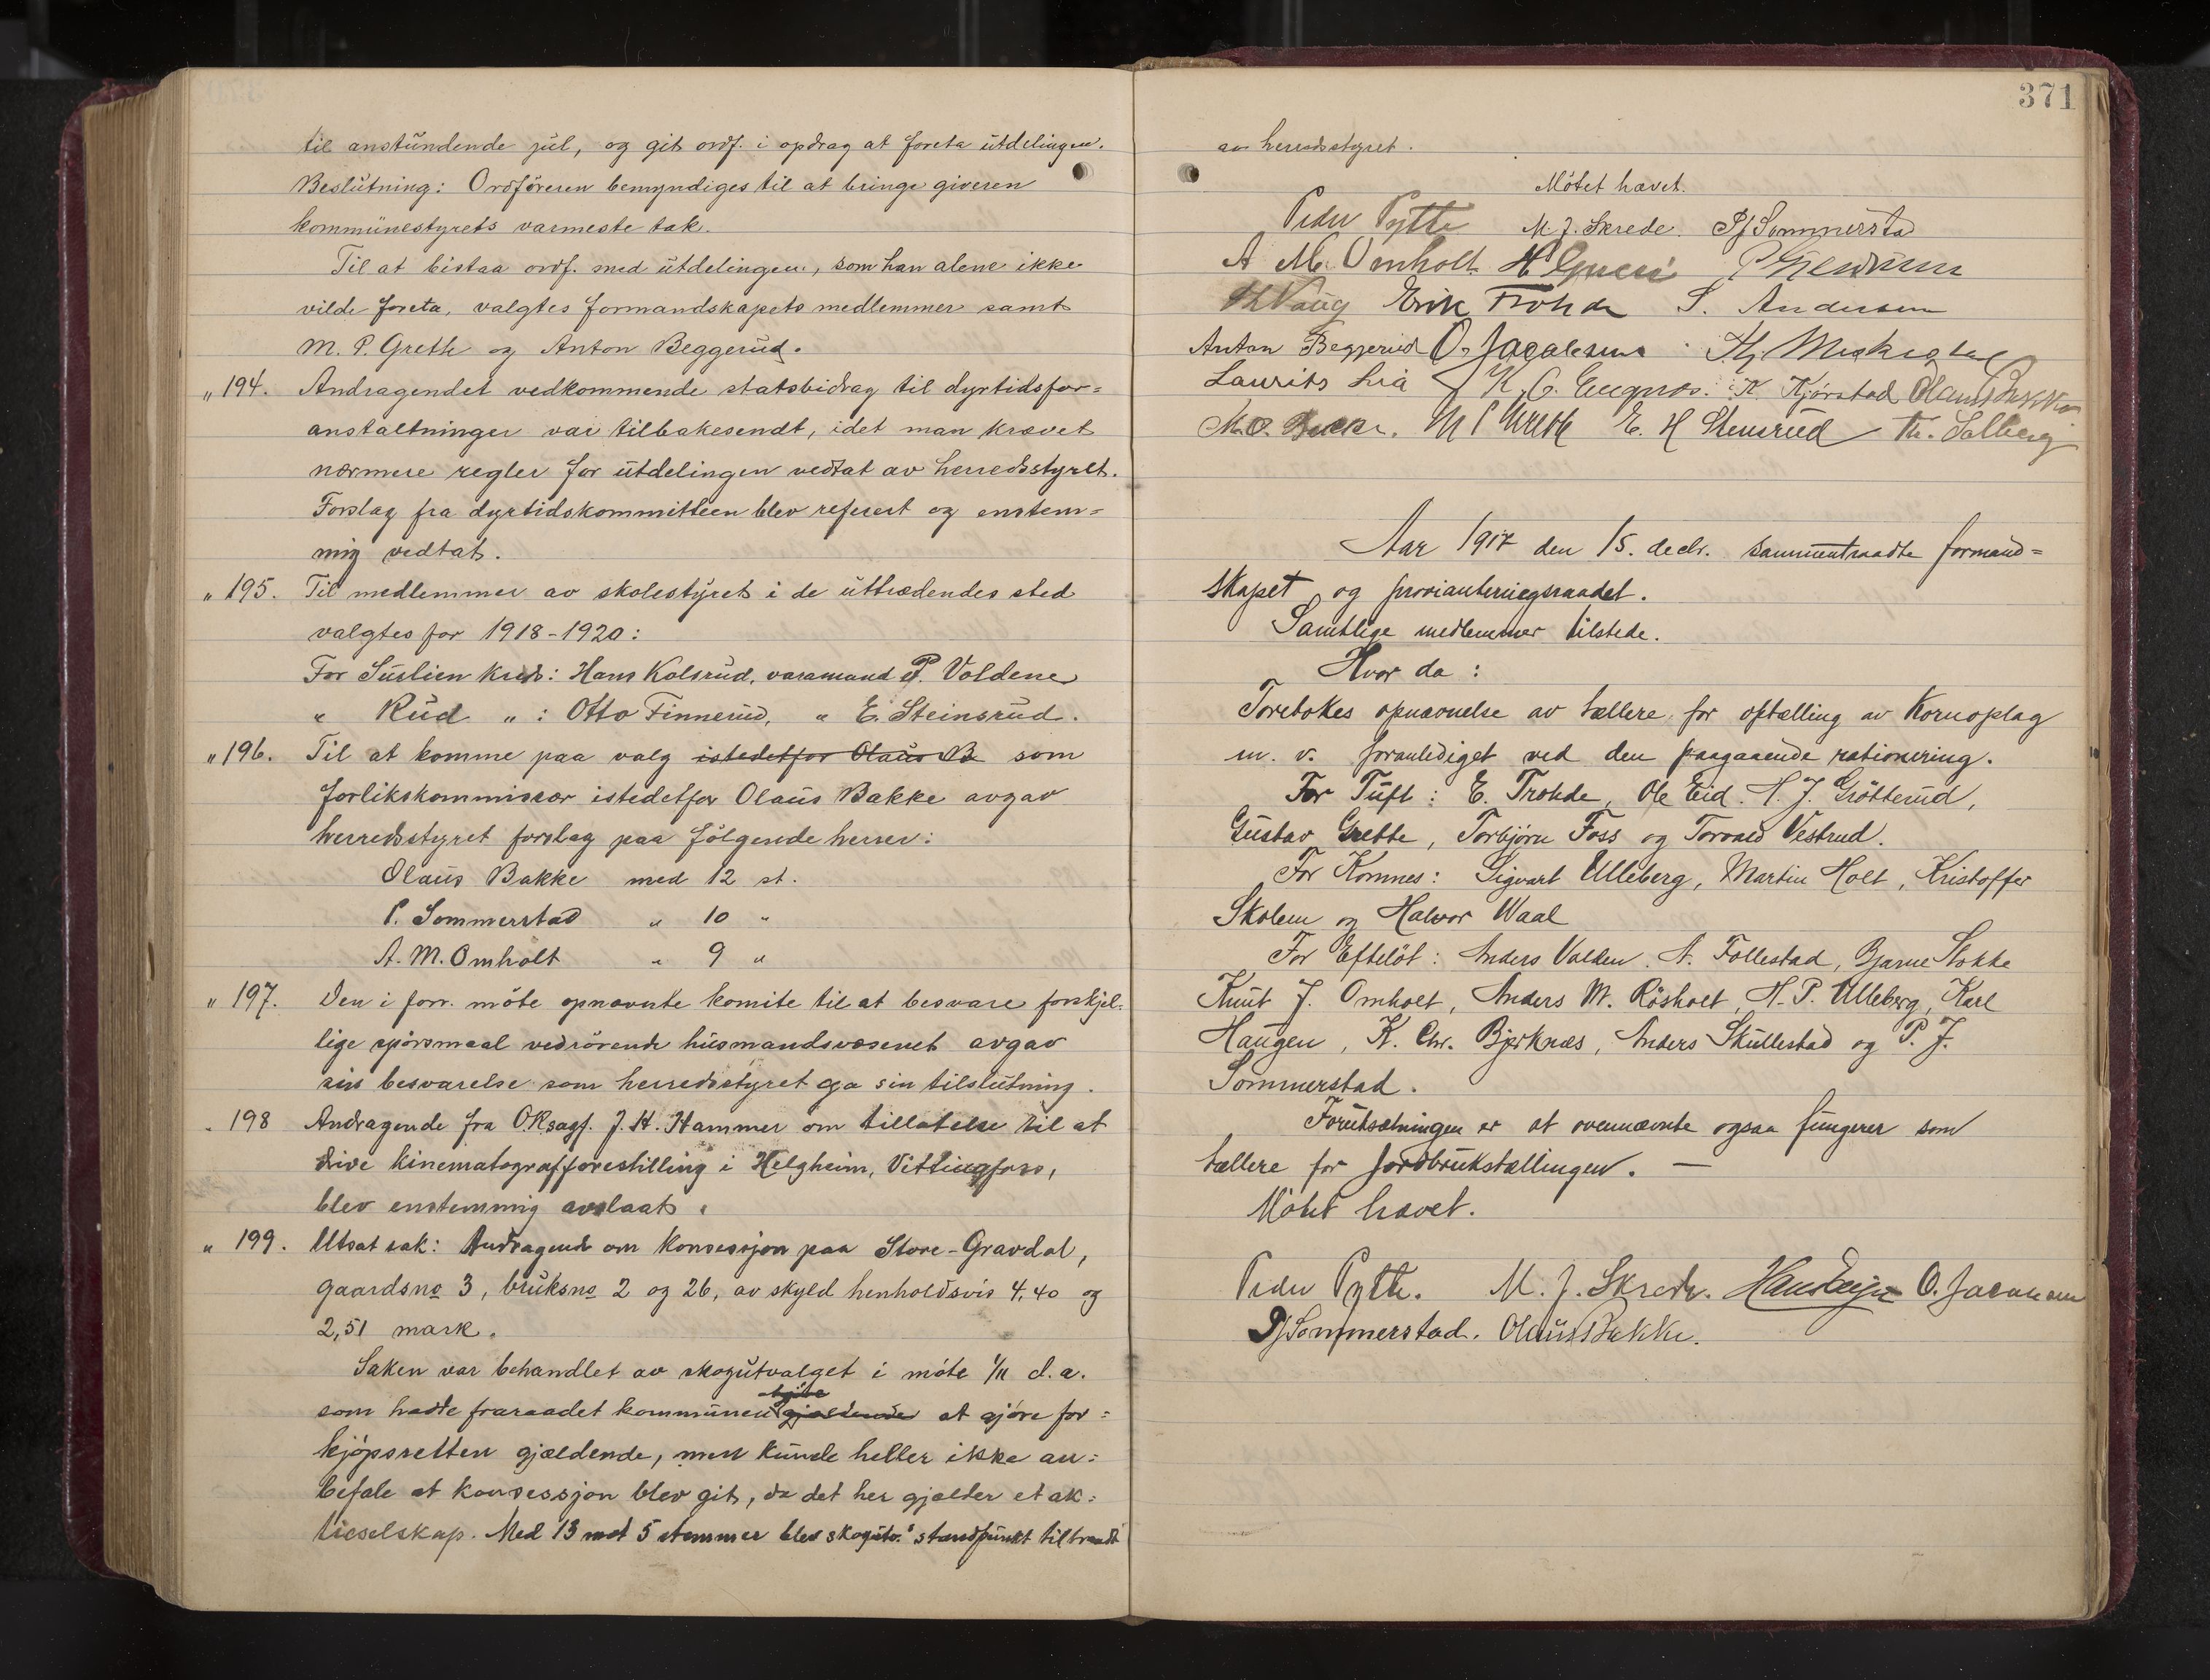 til anstundende jul, og git ordf. i opdrag at foreta utdelingen.
Beslutning: Ordføreren bemyndiges til at bringe giveren
kommunestyrets varmeste tak.
Til at bistaa ordf. med utdelingen, som han alene ikke
vilde foreta, valgtes formandskapets medlemmer samt
M. P. Greth og Anton Beggerud.
„ 194. Andragendet vedkommende statsbidrag til dyrtidsfor=
anstaltninger var tilbakesendt, idet man krævet
nærmere regler for utdelingen vedtat av herredsstyret.
Forslag fra dyrtidskommitteen blev referert og enstem=
mig vedtat.
„ 195. Til medlemmer av skolestyret i de uttrædendes sted
valgtes for 1918-1920:
For Suslien kreds: Hans Kolsrud, varamand P. Voldene
„ Rud „ : Otto Finnerud, „ E. Steinsrud.
„ 196. Til at komme paa valg istedetfor Olaus B som
forlikskommissær istedetfor Olaus Bakke avgav
herredsstyret forslag paa følgende herrer:
Olaus Bakke med 12 st.
P. Sommerstad „ 10 „
A. M. Omholt „ 9 „
„ 197. Den i forr. møte opnævnte komite til at besvare forskjel-
lige spørsmaal vedrørende husmandsvæsenet avgav
sin besvarelse som herredsstyret ga sin tilslutning.
„ 198 Andragende fra O.R.sagf. J. H. Hammer om tillatelse til at
drive kinematografforestilling i Helgheim, Vittingfoss,
blev enstemmig avslaat.
„ 199. Utsat sak: Andragende om konsessjon paa Store-Gravdal,
gaardsno 3, bruksno 2 og 26, av skyld henholdsvis 4,40 og
2,51 mark.
Saken var behandlet av skogutvalget i møte 1/11 d.a.
som hadde fraraadet kommunen gjældende at gjøre for=
kjøpsretten gjældende, men kunde heller ikke an=
befale at konsessjon blev git, da det her gjælder et ak=
tieselskap. Med 13 mot 5 stemmer blev skogutv.s standpunkt tiltraadt
371
av herredsstyret.
Møtet hævet.
Peder Pytte M. J. Skrede. PJ Sommerstad
A M. Omholt
Erik Trohde S. Andersen
Anton Beggerud O. Jacobsen
Laurits Lia K. Kjørstad Olaus Bakke
M P Greth E. H Stensrud Th. Solberg
Aar 1917 den 15. decbr. sammentraadte formand=
skapet og provianteringsraadet.
Samtlige medlemmer tilstede.
Hvor da:
Foretokes opnævnelse av tællere for optælling av kornoplag
m. v. foranlediget ved den paagaaende rationering.
For Tuft: E. Trohde, Ole Eid. H. J. Grøtterud,
Gustav Grette, Torbjørn Foss og Torvald Vestrud.
For Komnes: Sigvart Ulleberg, Martin Holt, Kristoffer
Skolem og Halvor Waal
For Efteløt: Anders Valden. A. Follestad, Bjarne Stokke
Knut J. Omholt, Anders M. Røsholt, H. P. Ulleberg, Karl
Haugen, K. Chr. Bjerknæs, Anders Skullestad og P. J.
Sommerstad.
Forutsætningen er at ovennævnte ogsaa fungerer som
tællere for jordbrukstællingen. —
Møtet hævet.
Peder Pytte. M. J. Skrede. O. Jacobsen
PJ Sommerstad. Olaus Bakke.